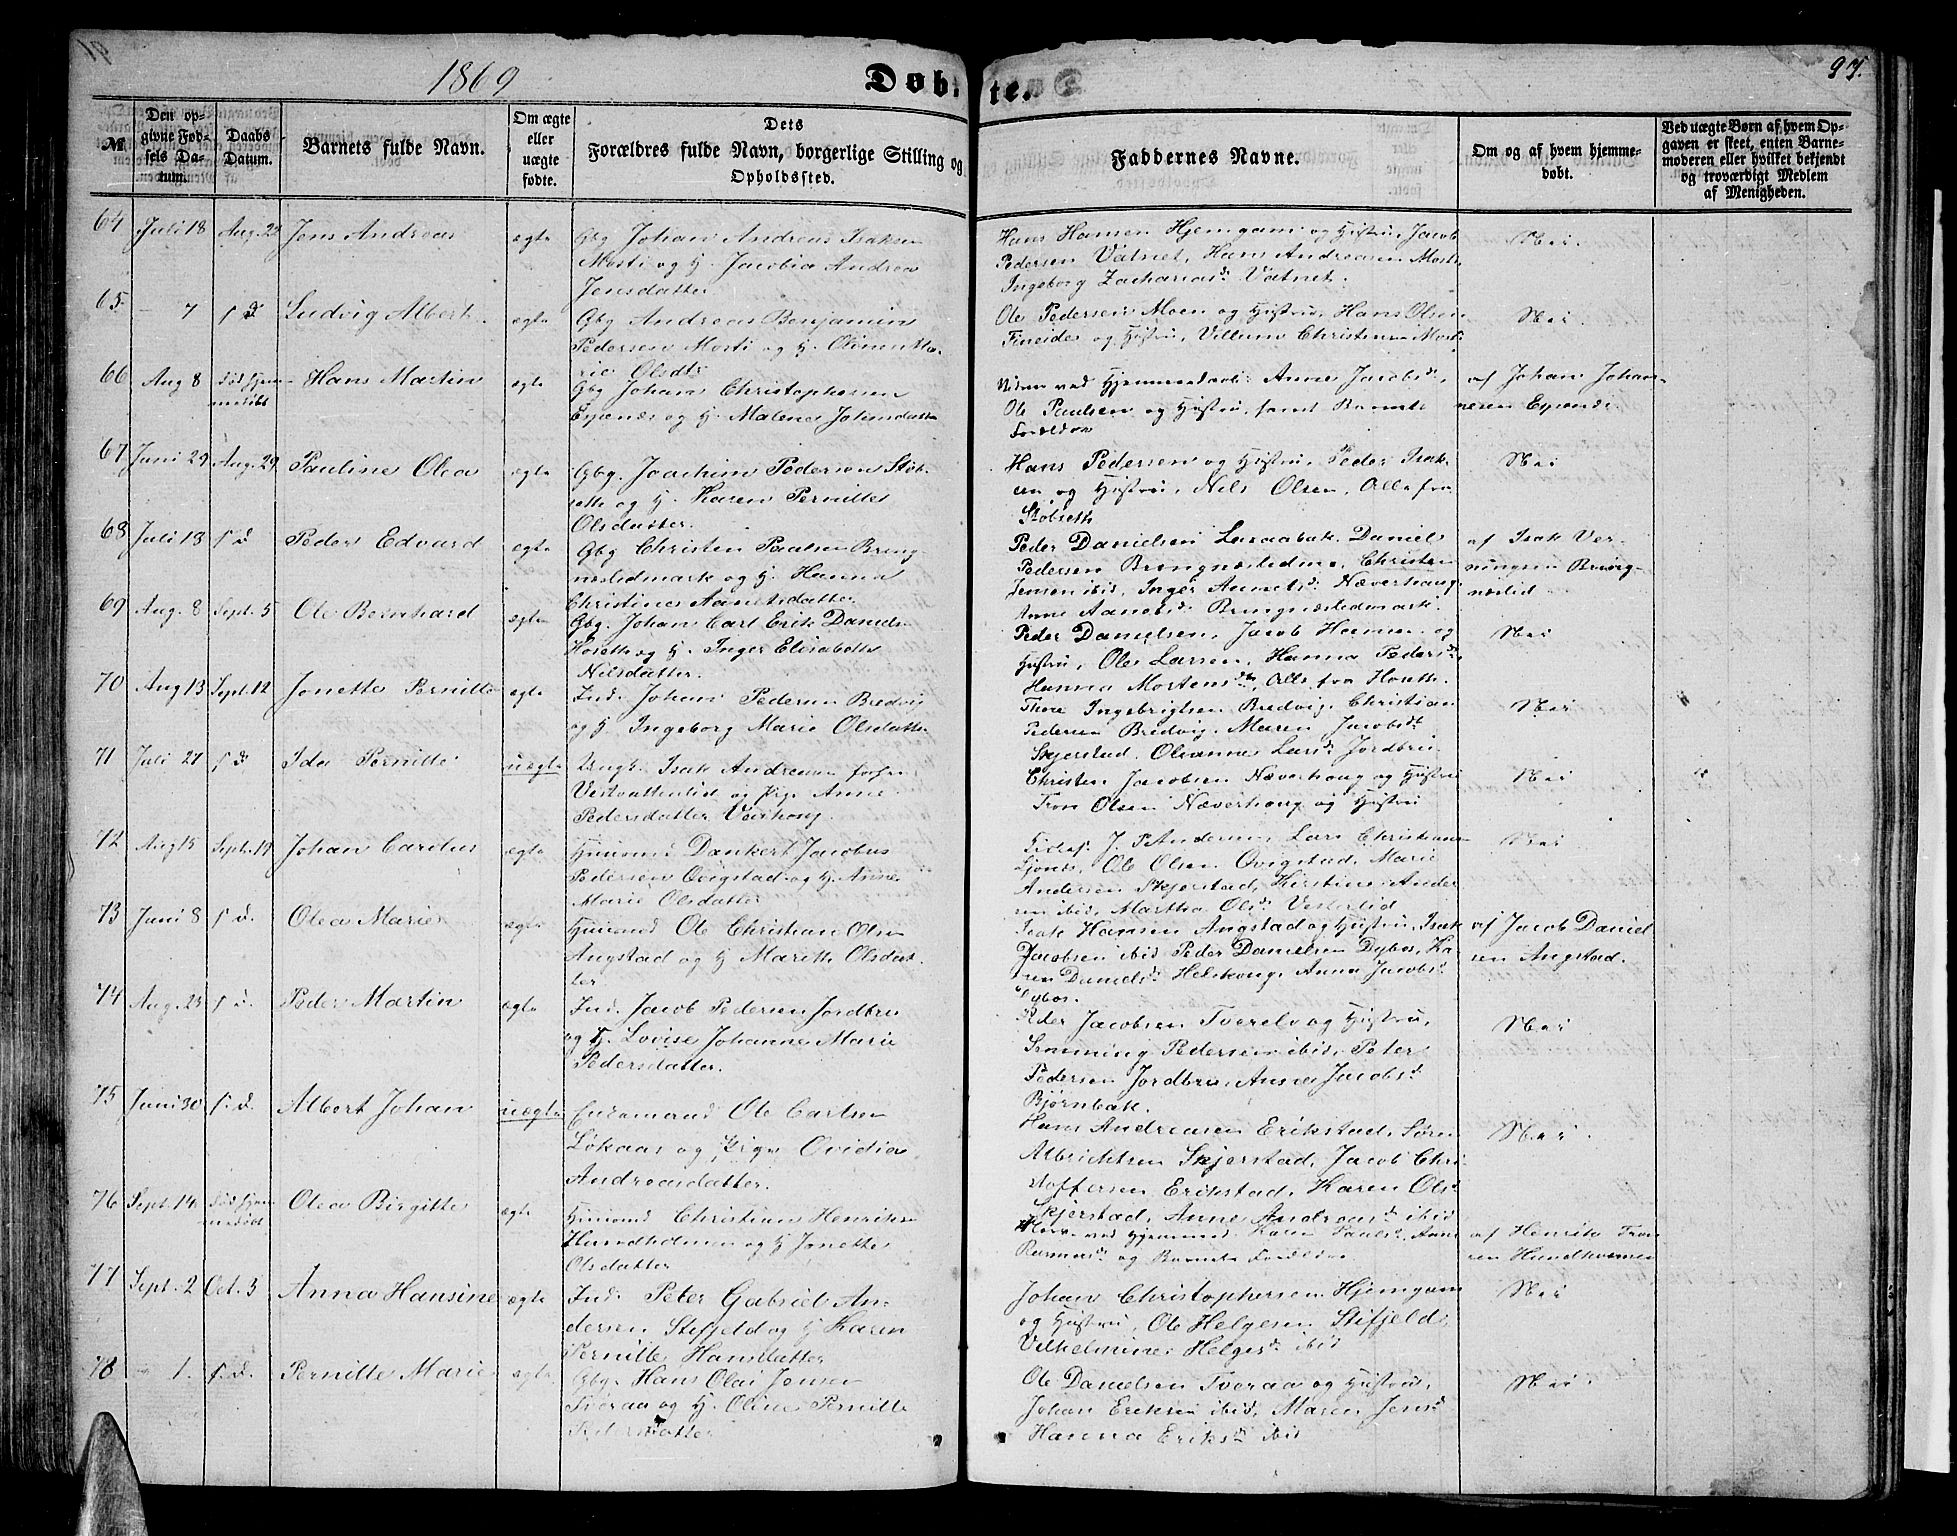 1869
Døbte.
97.
№
Den opgivne Fødsels Datum.
Daabs Datum.
Barnets fulde Navn.
Om ægte eller uægte fødte.
Dets Forældres fulde Navn, borgerlige Stilling og Opholdssted.
Faddernes Navne.
Om og af hvem hjemmedøbt.
Ved uægte Børn af hvem Opgaven er skeet, enten Barnemoderen eller hvilket bekjendt og troværdigt Medlem af Menigheden.
64 Juli 18 Aug. 22 Jens Andreas ægte Gbg Johan Andreas Isaksen
Mosti og H. Jacobia Andrea
Jensdatter
Hans Hansen Hjemgam og Hustru, Jacob
Pedersen Vatnet, Hans Andreasen Mosti
Ingeborg Zachariasd. Vatnet.
Nei.
65 - 7 s d Ludvig Albert ægte Gbg Andreas Benjamin
Pedersen Mosti og H. Olsdtr
Ole Pedersen Moen og Hustru, Hans Olsen
Fineidet og Hustru, Villum Christensen Mosti
Nei.
66 Aug 8 Død hjemmedøbt Hans Martin ægte Gbg Johan Christophersen
Espenæs og H. Malene Johnsdatter
Vidner ved Hjemmedaab: Anne Jacobsd.,
Ole Paulsen og Hustru, samt Barnets
Forældre
af Johan Johannesen
67 Juni 29 Aug. 29 Pauline Olea ægte Gbg. Joachim Pedersen Stobsette og H. Karen Pernille
Olsdatter.
Hans Pedersen og Hustru, Peder Isaksen og Hustru, Nils Olsen, Alle fra
Stobseth
Nei
68 Juli 13 s d Peder Edvard ægte Gbg Christen Paulsen Bringneslidmark og H. Hanna
Christine Aanetsdatter.
Peder Danielsen Daniel
Pedersen Christen
Jensen ibid, Inger Næverhaug
Anne
af Isak
69 Aug. 8 Sept. 5 Ole Bernhard ægte Gbg. Johan Carl Erik Daniels.
Hosette og H. Inger Elisabeth
Nilsdatter.
Peder Danielsen, Jacob Hansen og
Hustru, Ole Larsen, Hanna Pedersd.
Hanna Mortensdtr, Alle fra Hoseth.
Nei
70 Aug 13 Sept. 12 Jonette Pernille ægte Ind. Johan Pedersen Bredvig
og H. Ingeborg Marie Olsdatter
Thore Ingebrigtsen Bredvig, Christian
Pedersen Bredvig, Maren Jacobsdt
Skjerstad, Oleanna Larsd. Jordbru
Nei
71 Juli 27 s d. Ida Pernille uægte Ungk. Isak Andreasen
Vestvatnlid og Pige Anne
Pedersdatter
Christen Jacobsen Næverhaug og Hustru
Tron Olsen Næverhaug og Hustru
Nei
72 Aug 15 Sept. 19 Johan Carelus ægte Huusmd Dankert Jacobus
Pedersen Øvigstad og H. Anne
Marie Olsdatter
J. P Andersen, Lars Christians.
Ljones, Ole Olsen Øvigstad, Marie
Andersen Skjerstad, Kirstine Andersen ibid, Martha Olsd. Vesterlid
Nei
73 Juni 8 s d. Olea Marie ægte Huusmd Ole Christian Olsen
Angstad og H Marith Olsdatter
Isak Hansen Angstad og Hustru, Isak
Jacobsen ibid, Peder Danielsen Dybos, Karen Danielsd. Anna Jacobsd.
Dybos.
af Jacob Danielsen Angstad.
74 Aug. 23 s d. Peder Martin ægte Ind. Jacob Pedersen Jordbru
og H. Lovise Johanne Marie
Pedersdatter.
Peder Jacobsen Tverelv og Hustru,
Pedersen ibid, Peter
Pedersen Jordbru, Anna Jacobsd.
Bjørnbak.
Nei
75 Juni 30 s. d. Albert Johan uægte Enkemand Ole Carlsen
Løkaas og Pige Ovidia
Andreasdatter.
Hans Andreasen Erikstad, Søren
Albrichtsen Skjerstad, Jacob Christoffersen Erikstad, Karen Olsd
Skjerstad, Anne Andreasd. ibid
Nei.
76 Sept. 14 Død hjemmedøbt Olea Birgitte ægte Huusmd Christian Henriks.
Hundholmen og H Jonette
Olsdatter
ved Hjemmed. Karen Paulsd. Anne
Rasmusd. og Barnets Forældre.
af Henrik
77 Sept. 2 Oct. 3 Anna Hansine ægte Ind. Peter Gabriel Andersen Stifjeld og H Karen
Pernille Hansdatter
Johan Christophersen Hjemgam
og Hustru, Ole Helgesen Stifjeld,
Vilhelmine Helgesd. ibid
Nei
78 - 1. s. d. Pernille Marie ægte Gbg. Hans Olai Jensen
Tveraa og H. Oline Pernille
Pedersdatter
Ole Danielsen Tveraa og Hustru,
Johan Eriksen ibid, Maren Jensd
Hanna Eriksd. ibid
Nei.